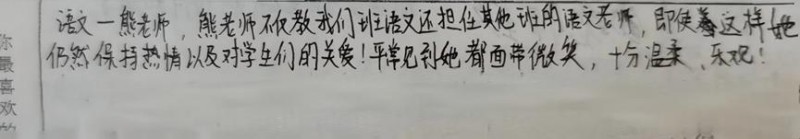 语文一熊老师，熊老师不仅教我们班语文还担任其他班的语文老师，即使这样她
仍然保持热情以及对学生们的关爱！平常见到她都面带微笑，十分温柔、乐观！
你最喜欢的